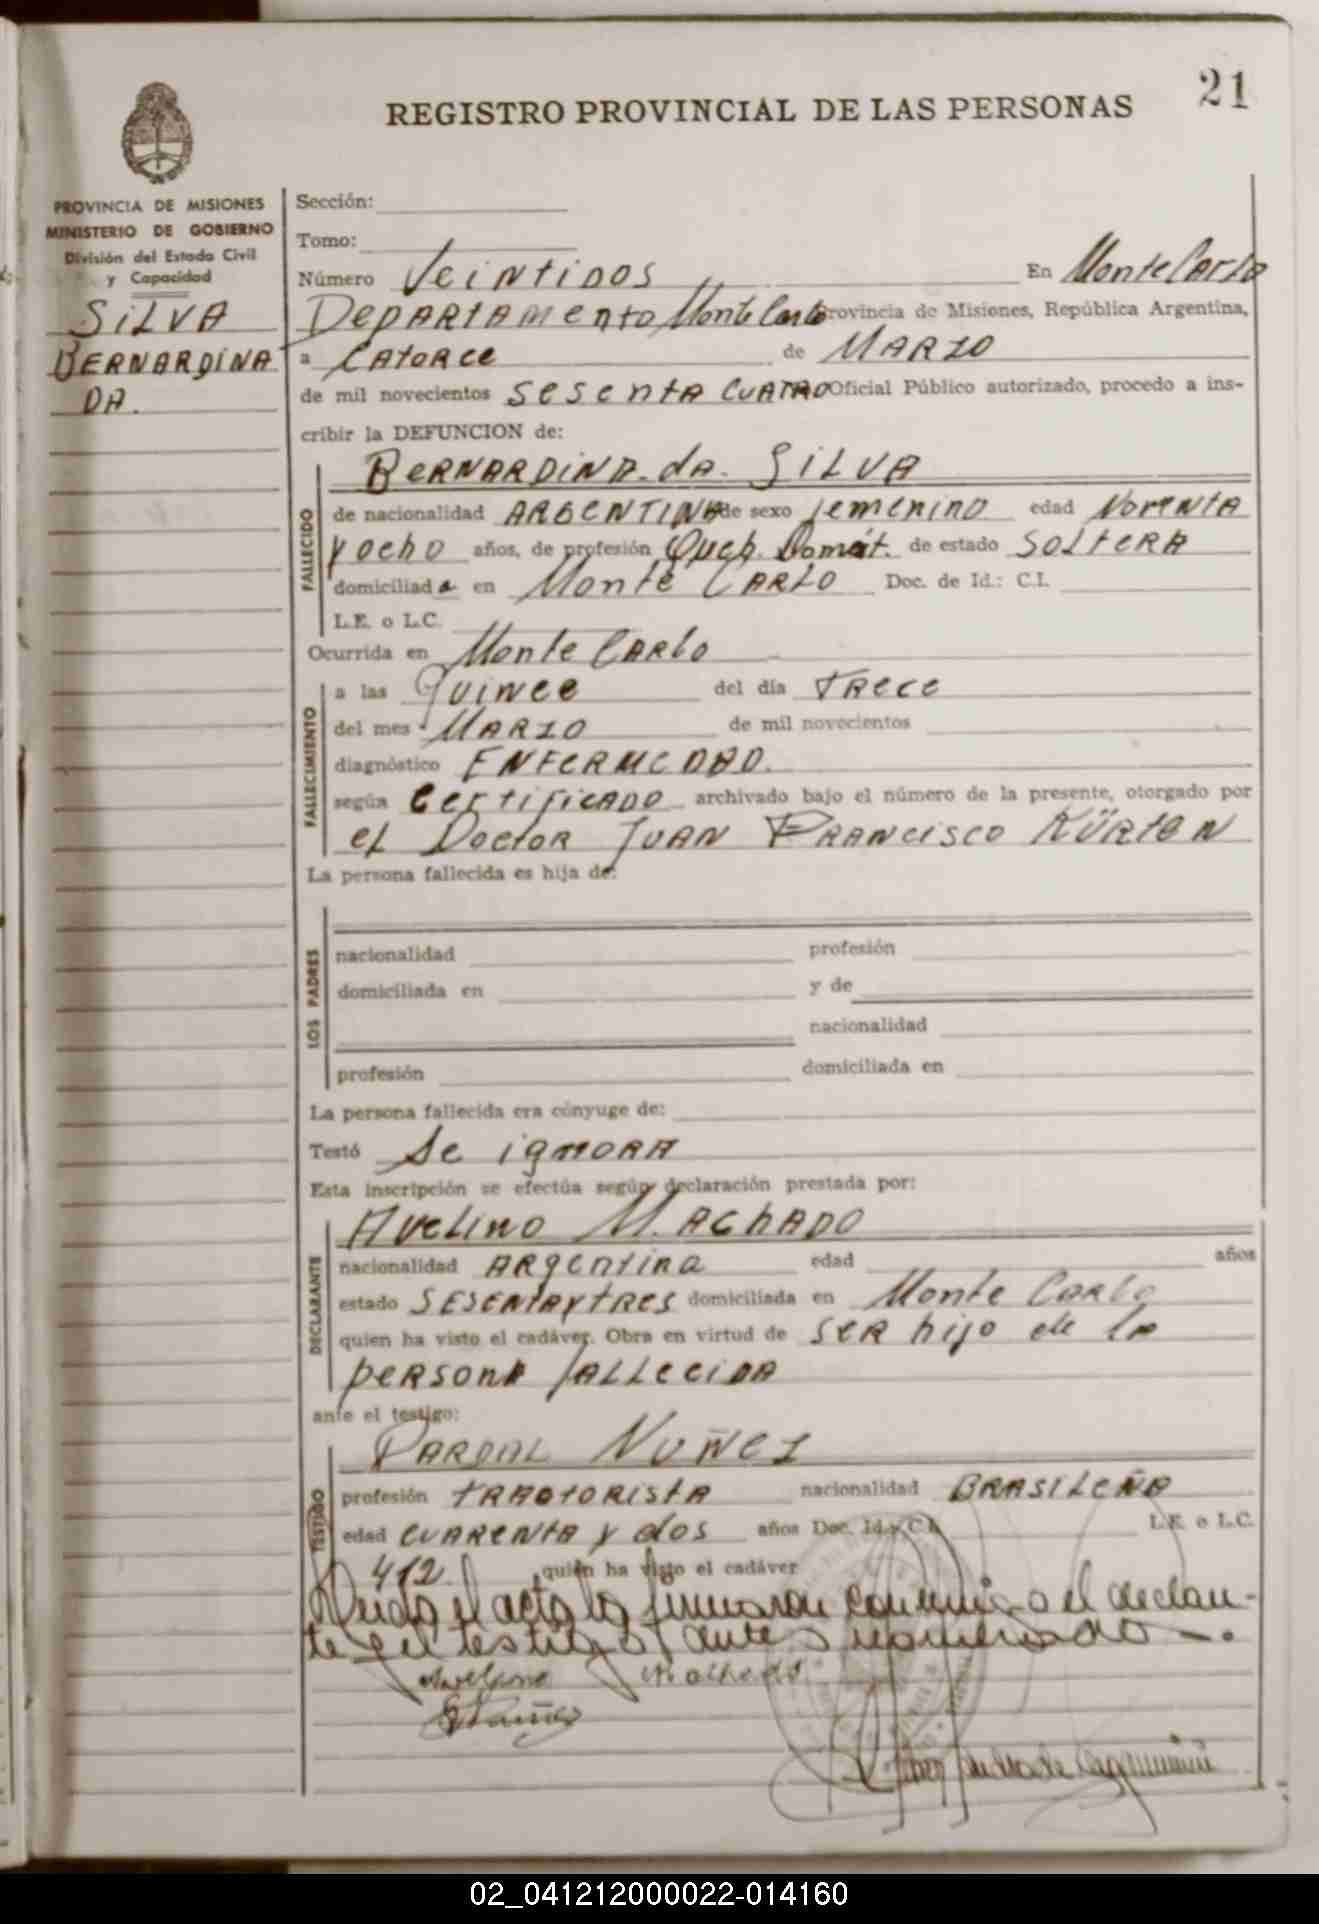 21
REGISTRO PROVINCIAL DE LAS PERSONAS
PROVINCIA DE MISIONES
MINISTERIO DE GOBIERNO
División del Estado Civil
y Capacidad
SILVA
BERNARDINA
DA.
Sección:
Tomo:
Número Veintidos En Monte Carlo
Departamento Monte Carlo Provincia de Misiones, República Argentina,
a Catorce de Marzo
de mil novecientos sesenta cuatro Oficial Público autorizado, procedo a ins-
cribir la DEFUNCION de:
Bernardina da Silva
FALLECIDO
de nacionalidad Argentina de sexo femenino edad Noventa
y ocho años, de profesión Queh. Domést. de estado Soltera
domiciliada en Monte Carlo Doc. de Id.: C.I.
L.E. o L.C.
Ocurrida en Monte Carlo
FALLECIMIENTO
a las Quince del día Trece
del mes Marzo de mil novecientos
diagnóstico Enfermedad.
según Certificado archivado bajo el número de la presente, otorgado por
el Doctor Juan Francisco Kürten
La persona fallecida es hija de:
LOS PADRES
nacionalidad profesión
domiciliada en y de
nacionalidad
profesión domiciliada en
La persona fallecida era cónyuge de:
Testó Se ignora
Esta inscripción se efectúa según declaración prestada por:
Avelino Machado
DECLARANTE
nacionalidad Argentina edad años
estado sesentaytres domiciliada en Monte Carlo
quien ha visto el cadáver. Obra en virtud de ser hijo de la
persona fallecida
ante el testigo:
Pardal Nuñez
TESTIGO
profesión tractorista nacionalidad Brasileña
edad cuarenta y dos años Doc. Id. y C.I. L.E. o L.C.
412. quien ha visto el cadáver
Leida el acta la firmaron conmigo el declaran-
te y el testigo antes nombrado -.
Avelino Machado
Nuñez
02_041212000022-014160